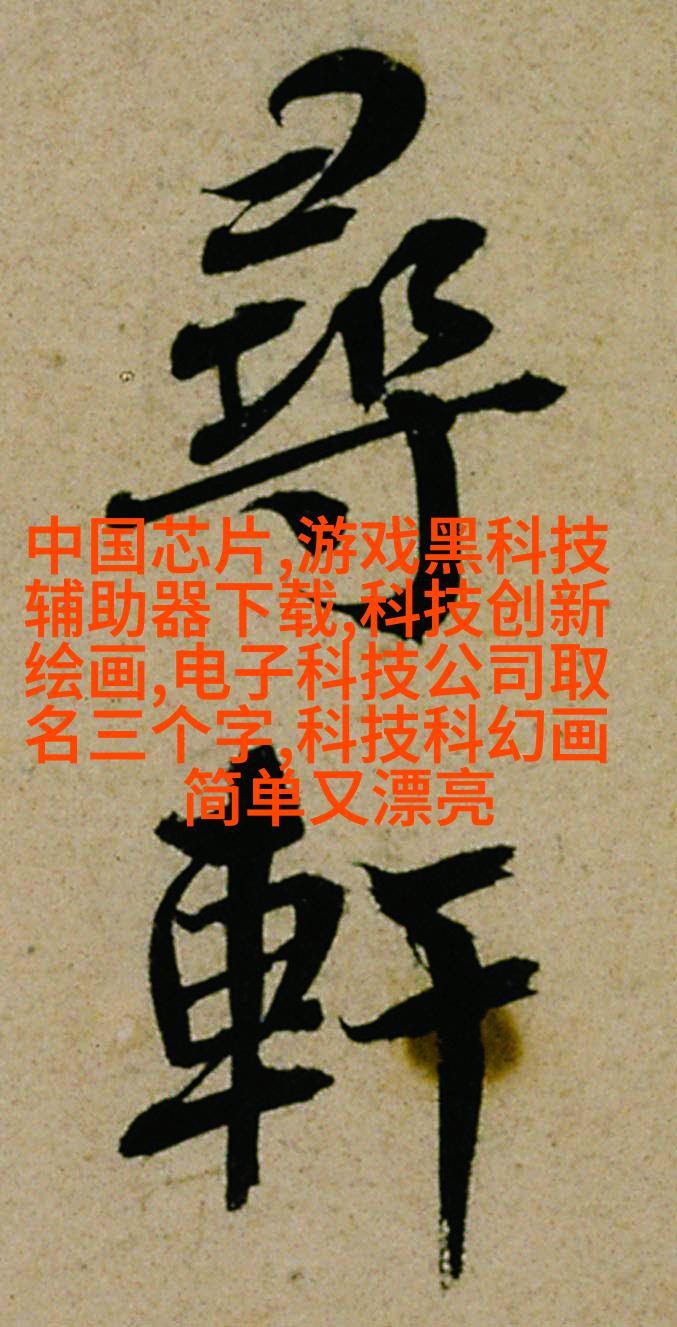 尋
軒
中国芯片,游戏黑科技
辅助器下载,科技创新
绘画,电子科技公司取
名三个字,科技科幻画
简单又漂亮